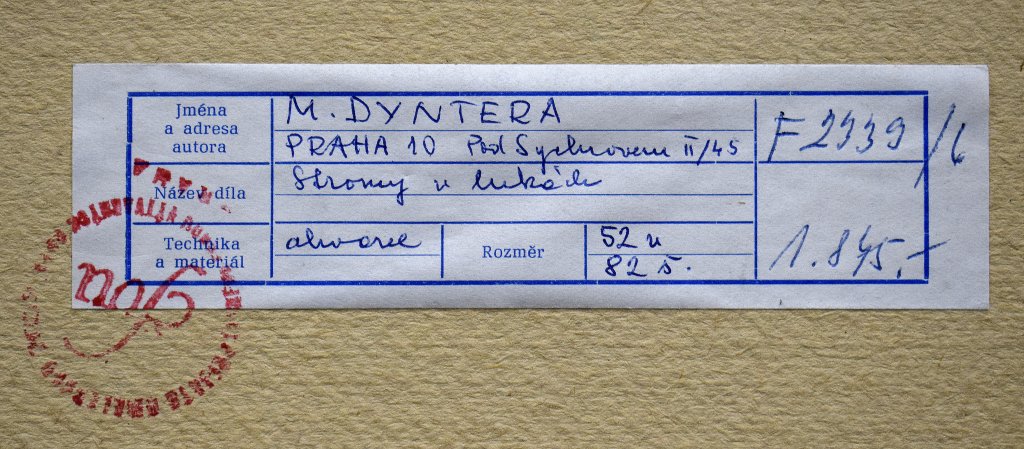 Jména
a adresa
autora
M. DYNTERA
PRAHA 10 Pod Sychrovem II/45
F 2339/6
Název díla
Stromy v lukách
Technika
a materiál
akvarel
Rozměr
52 v
82 š.
1.845.-